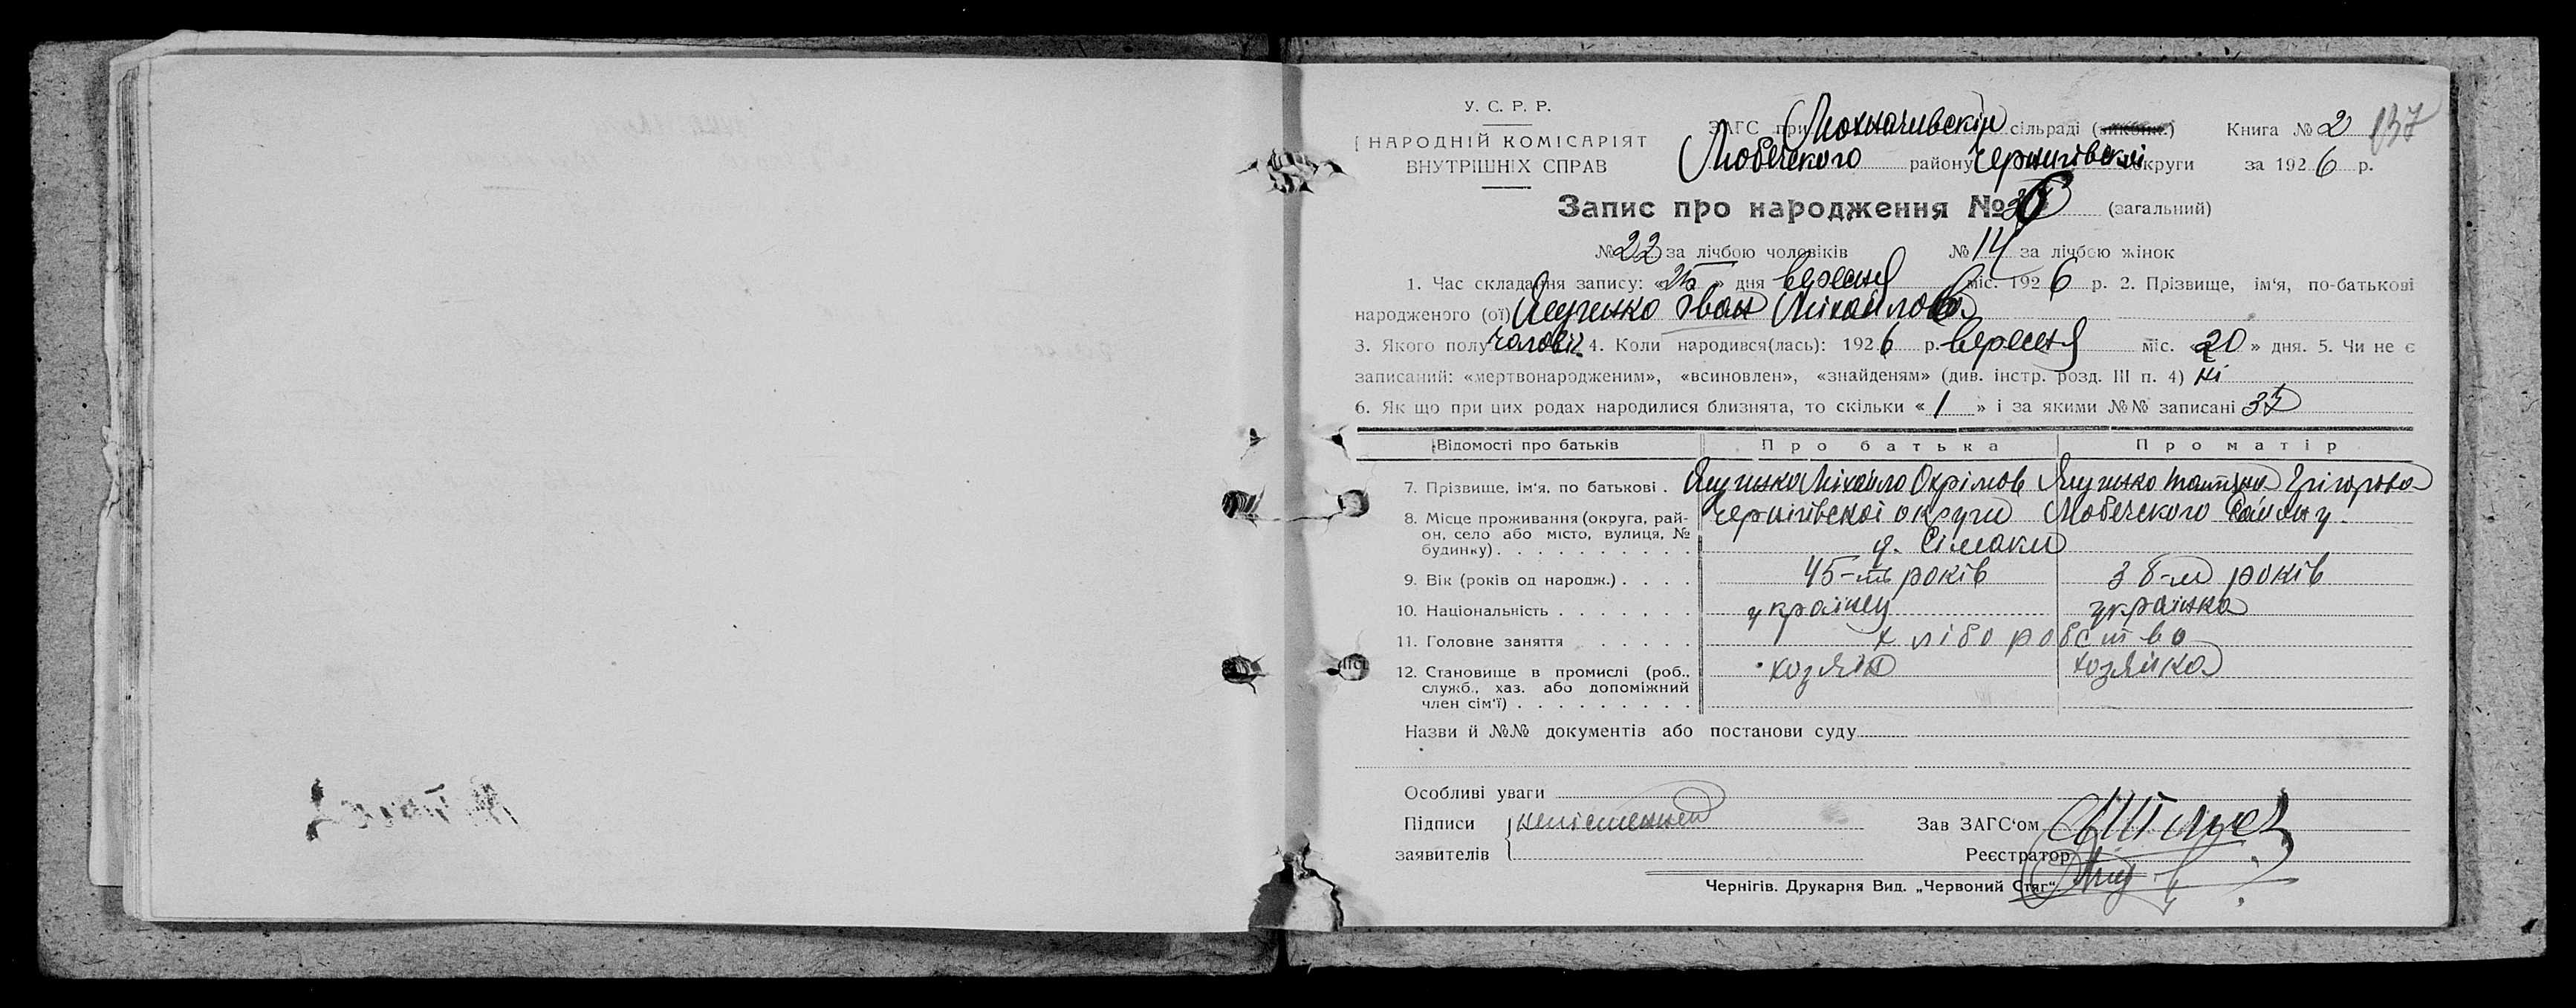 У. С. Р. Р.
НАРОДНІЙ КОМІСАРІЯТ
ВНУТРІШНІХ СПРАВ
ЗАГС при Мохначивскій сільраді (виконк.)
Любечского району Чернигівскоі округи
Книга № 2 137
за 1926 р.
Запис про народження № 36 (загальний)
№ 22 за лічбою чоловіків № 14 за лічбою жінок
1. Час складання запису: «25» дня вересня міс. 1926 р. 2. Прізвище, ім'я, по-батькові
народженого (ої) Ященко Іван Міхайлов
3. Якого полу чоловіч. 4. Коли народився(лась): 1926 р. вересня міс. «20» дня. 5. Чи не є
записаний: «мертвонародженим», «всиновлен», «знайденям» (див. інстр. розд. III п. 4) ні
6. Як що при цих родах народилися близнята, то скільки «1» і за якими №№ записані
Відомості про батьків Про батька Про матір
7. Прізвище, ім'я, по батькові . Ященко Міхайло Охрімов Ященко Татяна Грігорова
8. Місце проживання (округа, рай-
он, село або місто, вулиця, №
будинку) . . . . . . . . . .
Чернігівскоі округи Любечского району
Сімаки
9. Вік (років од народж.) . . . . 45-ть років 38-м років
10. Національність . . . . . . . українец українка
11. Головне заняття . . . . . хліборобство
12. Становище в промислі (роб.,
служб., хаз. або допоміжний
член сім'ї) . . . . . . . . .
хозяін хозяйка
Назви й №№ документів або постанови суду
Особливі уваги
Підписи
заявителів
неписменний
Зав ЗАГС'ом
Реєстратор
Чернігів. Друкарня Вид. „Червоний Стяг"